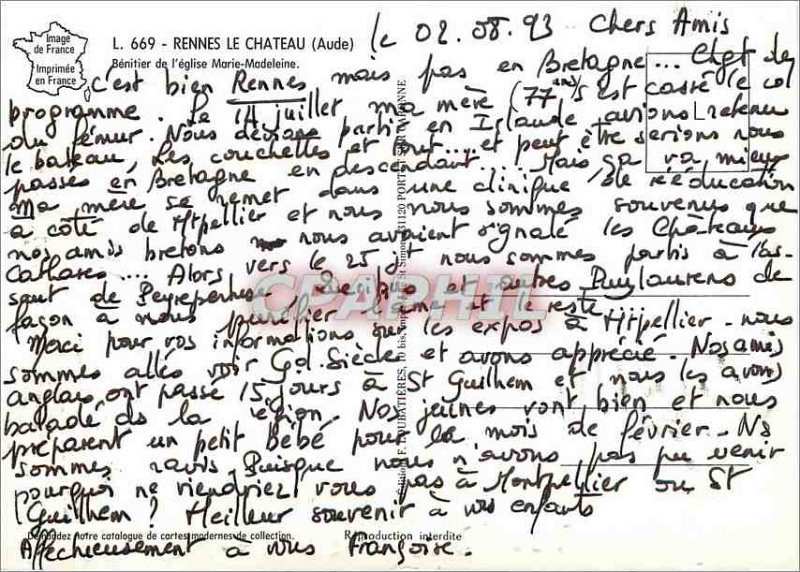 Image
de France
Imprimée
en France
L. 669 - RENNES LE CHATEAU (Aude)
Bénitier de l'église Marie-Madeleine.
le 02.08.93 Chers Amis
C'est bien Rennes mais pas en Bretagne... Chgt de
programme. Le 14 juillet ma mère (77 ans) s'est cassé le col
du fémur. Nous devions partir en Islande avions retenu
le bateau, les couchettes et tout.... et peut être serions nous
passés en Bretagne en descendant.... Mais ça va mieux
Ma mère se remet dans une clinique de rééducation
à côté de Mtpellier et nous nous sommes souvenus que
nos amis bretons nous avaient signalé les Châteaux
Cathares.... Alors vers le 25 jt nous sommes partis à l'as-
saut de Peyrepertuse Queribus et autres Puylaurens de
façon à nous purifier l'âme et le reste
Merci pour vos informations sur les expos à Mtpellier - nous
sommes allés voir Gd Siècle et avons apprécié. Nos amis
anglais ont passé 15 jours à St Guilhem et nous les avons
baladé ds la région. Nos jeunes vont bien et nous
préparent un petit Bébé pour le mois de février. Ns
sommes ravis. Puisque nous n'avons pas pu venir
pourquoi ne viendriez vous pas à Montpellier ou St
Guilhem ? Meilleur souvenir à vos enfants
Demandez notre catalogue de cartes modernes de collection. Reproduction interdite
Affectueusement à vous Françoise.
CPAPHIL